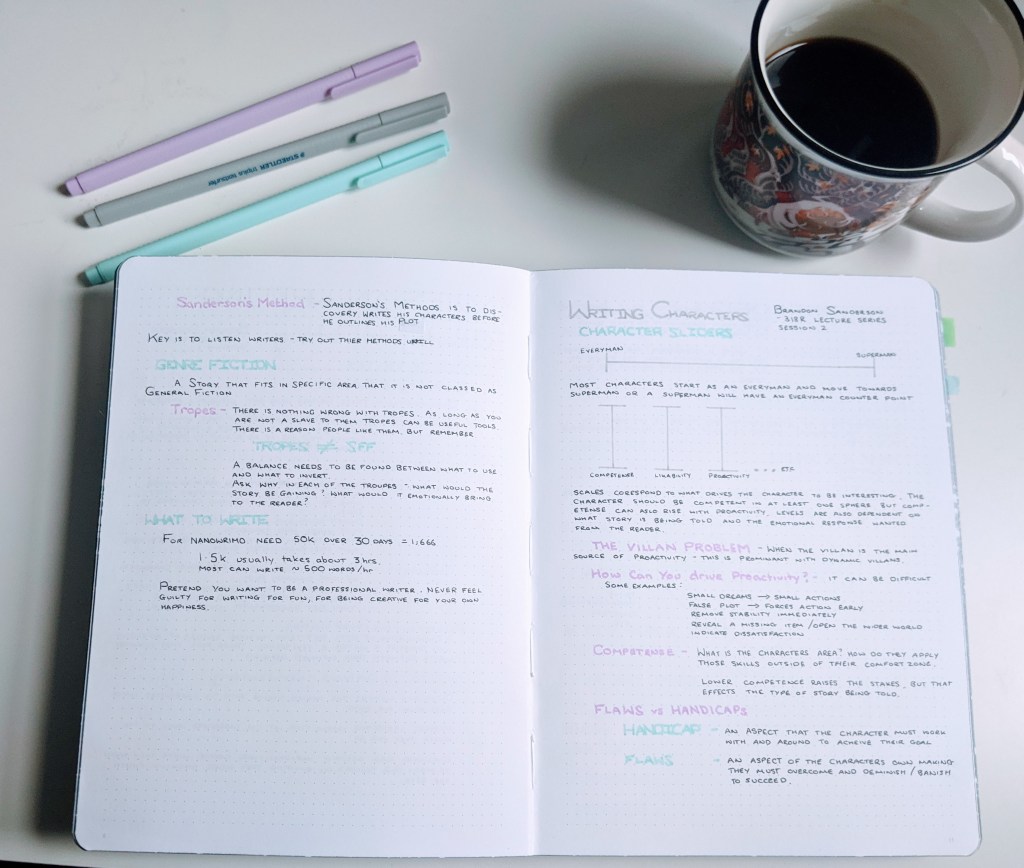 STAEDTLER triplus fineliner
Sanderson's Method - SANDERSON'S METHODS IS TO DIS-
COVERY WRITES HIS CHARACTERS BEFORE
HE OUTLINES HIS PLOT
KEY IS TO LISTEN WRITERS - TRY OUT THIER METHODS UNTILL
GENRE FICTION
A STORY THAT FITS IN SPECIFIC AREA THAT IT IS NOT CLASSED AS
GENERAL FICTION
Tropes - THERE IS NOTHING WRONG WITH TROPES. AS LONG AS YOU
ARE NOT A SLAVE TO THEM TROPES CAN BE USEFUL TOOLS
THERE IS A REASON PEOPLE LIKE THEM. BUT REMEMBER
TROPES ≠ SFF
A BALANCE NEEDS TO BE FOUND BETWEEN WHAT TO USE
AND WHAT TO INVERT.
ASK WHY IN EACH OF THE TROUPES - WHAT WOULD THE
STORY BE GAINING? WHAT WOULD IT EMOTIONALLY BRING
TO THE READER?
WHAT TO WRITE
FOR NANOWRIMO NEED 50K OVER 30 DAYS = 1,666
1.5k usually takes about 3hrs.
MOST CAN WRITE ≈ 500 WORDS/hr
PRETEND YOU WANT TO BE A PROFESSIONAL WRITER. NEVER FEEL
GUILTY FOR WRITING FOR FUN, FOR BEING CREATIVE FOR YOUR OWN
HAPPINESS.
WRITING CHARACTERS
BRANDON SANDERSON
- 318R LECTURE SERIES
SESSION 2
CHARACTER SLIDERS
EVERYMAN
SUPERMAN
MOST CHARACTERS START AS AN EVERYMAN AND MOVE TOWARDS
SUPERMAN OR A SUPERMAN WILL HAVE AN EVERYMAN COUNTER POINT
COMPETENCE LIKABILITY PROACTIVITY ... ETC
SCALES CORESPOND TO WHAT DRIVES THE CHARACTER TO BE INTERESTING. THE
CHARACTER SHOULD BE COMPETENT IN AT LEAST ONE SPHERE BUT COMP-
ETENSE CAN ALSO RISE WITH PROACTIVITY. LEVELS ARE ALSO DEPENDENT ON
WHAT STORY IS BEING TOLD AND THE EMOTIONAL RESPONSE WANTED
FROM THE READER.
THE VILLAN PROBLEM - WHEN THE VILLAN IS THE MAIN
SOURCE OF PROACTIVITY - THIS IS PROMINANT WITH DYNAMIC VILLANS.
How Can You drive Proactivity? - IT CAN BE DIFFICULT
SOME EXAMPLES:
SMALL DREAMS → SMALL ACTIONS
FALSE PLOT → FORCES ACTION EARLY
REMOVE STABILITY IMMEDIATELY
REVEAL A MISSING ITEM / OPEN THE WIDER WORLD
INDICATE DISSATISFACTION
COMPETENSE - WHAT IS THE CHARACTERS AREA? HOW DO THEY APPLY
THOSE SKILLS OUTSIDE OF THEIR COMFORT ZONE.
LOWER COMPETENCE RAISES THE STAKES, BUT THAT
EFFECTS THE TYPE OF STORY BEING TOLD.
FLAWS vs HANDICAPS
HANDICAP - AN ASPECT THAT THE CHARACTER MUST WORK
WITH AND AROUND TO ACHEIVE THEIR GOAL
FLAWS - AN ASPECT OF THE CHARACTERS OWN MAKING
THEY MUST OVERCOME AND DEMINISH / BANISH
TO SUCCEED.